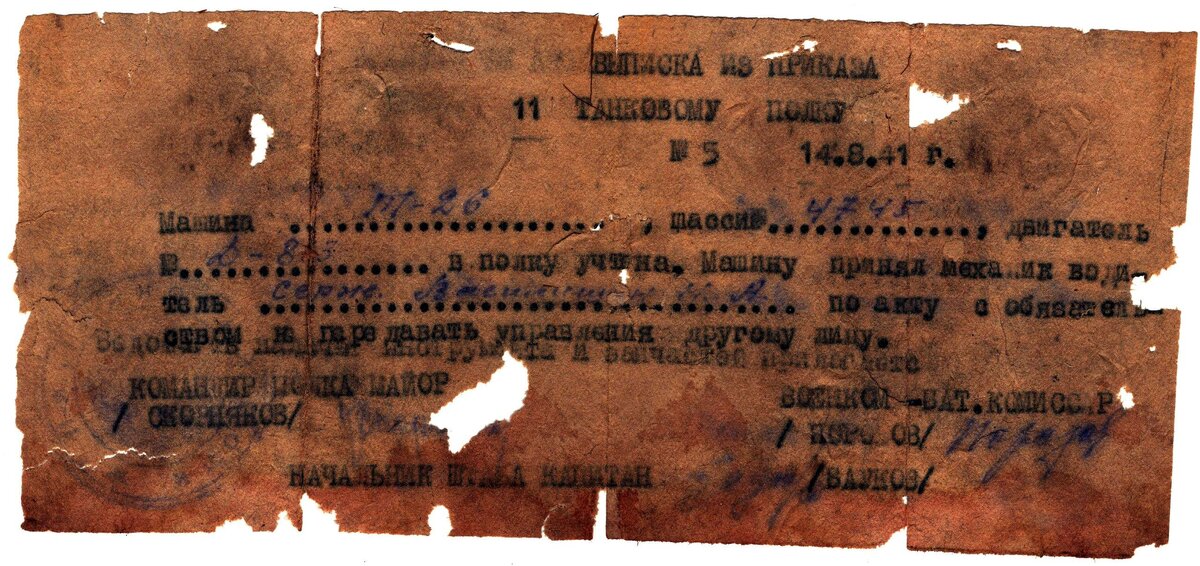 ВЫПИСКА ИЗ ПРИКАЗА
11 ТАНКОВОМУ ПОЛКУ
№ 5 14.8.41 г.
Машина Т-26, шасси№ 4745, двигатель
№ в полку учтена. Машину принял механик води-
тель серж. по акту с обязатель-
ством не передавать управления другому лицу.
Ведомость наличия инструмента и запчастей прилагается
КОМАНДИР ПОЛКА МАЙОР
/ СКОРНЯКОВ/
ВОЕНКОМ-БАТ.КОМИССАР
НАЧАЛЬНИК ШТАБА КАПИТАН